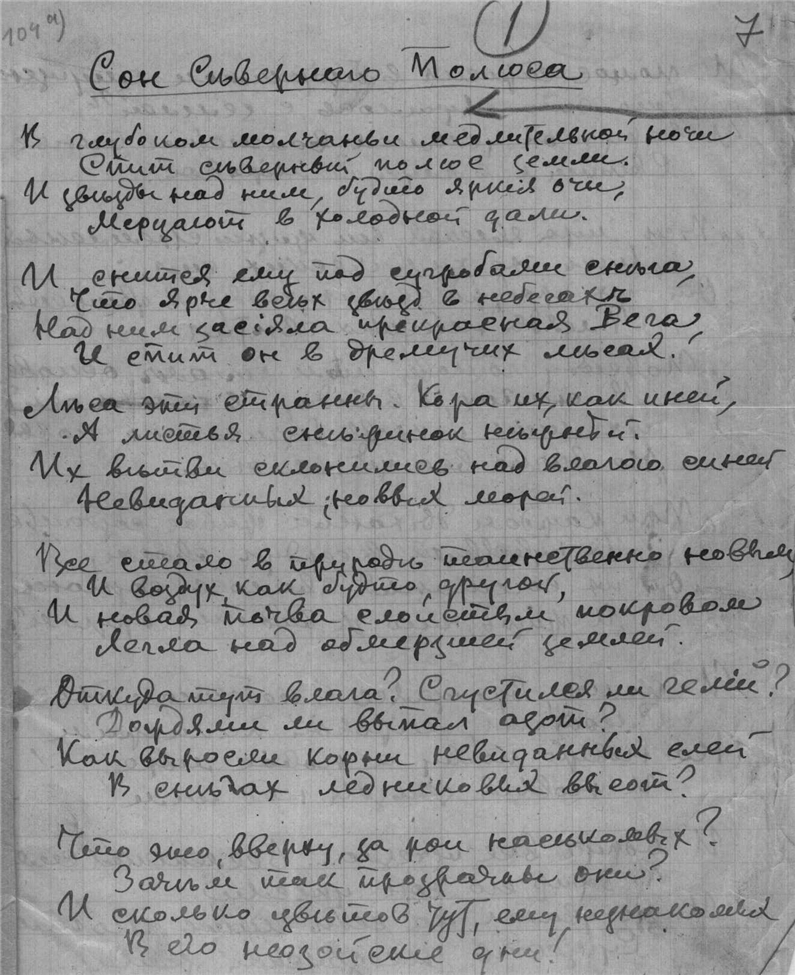 104 а)
1
7
Сон Сѣвернаго Полюса
В глубоком молчаньи медлительной ночи
Спит сѣверный полюс земли.
И звѣзды над ним, будто яркія очи,
Мерцают в холодной дали.
И снится ему под сугробами снѣга,
Что ярче всѣх звѣзд в небесахъ
Над ним засіяла прекрасная Вега,
И спит он в дремучих лѣсах.
Лѣса эти странны. Кора их, как иней,
А листья снѣжинок нѣжнѣй.
Их вѣтви склонились над влагою синей
Невиданных, новых морей.
Все стало в природѣ таинственно новым,
И воздух, как будто, другой,
И новая почва слоистым покровом
Легла над обмерзшей землей.
Откуда тут влага? Сгустился ли гелій?
Дождями ли выпал азот?
Как выросли корни невиданных елей
В снѣгах ледниковых высот?
Что это, вверху, за рои насѣкомых?
Зачѣм так прозрачны они?
И сколько цвѣтов тут, ему незнакомых
В его неозойскіе дни!